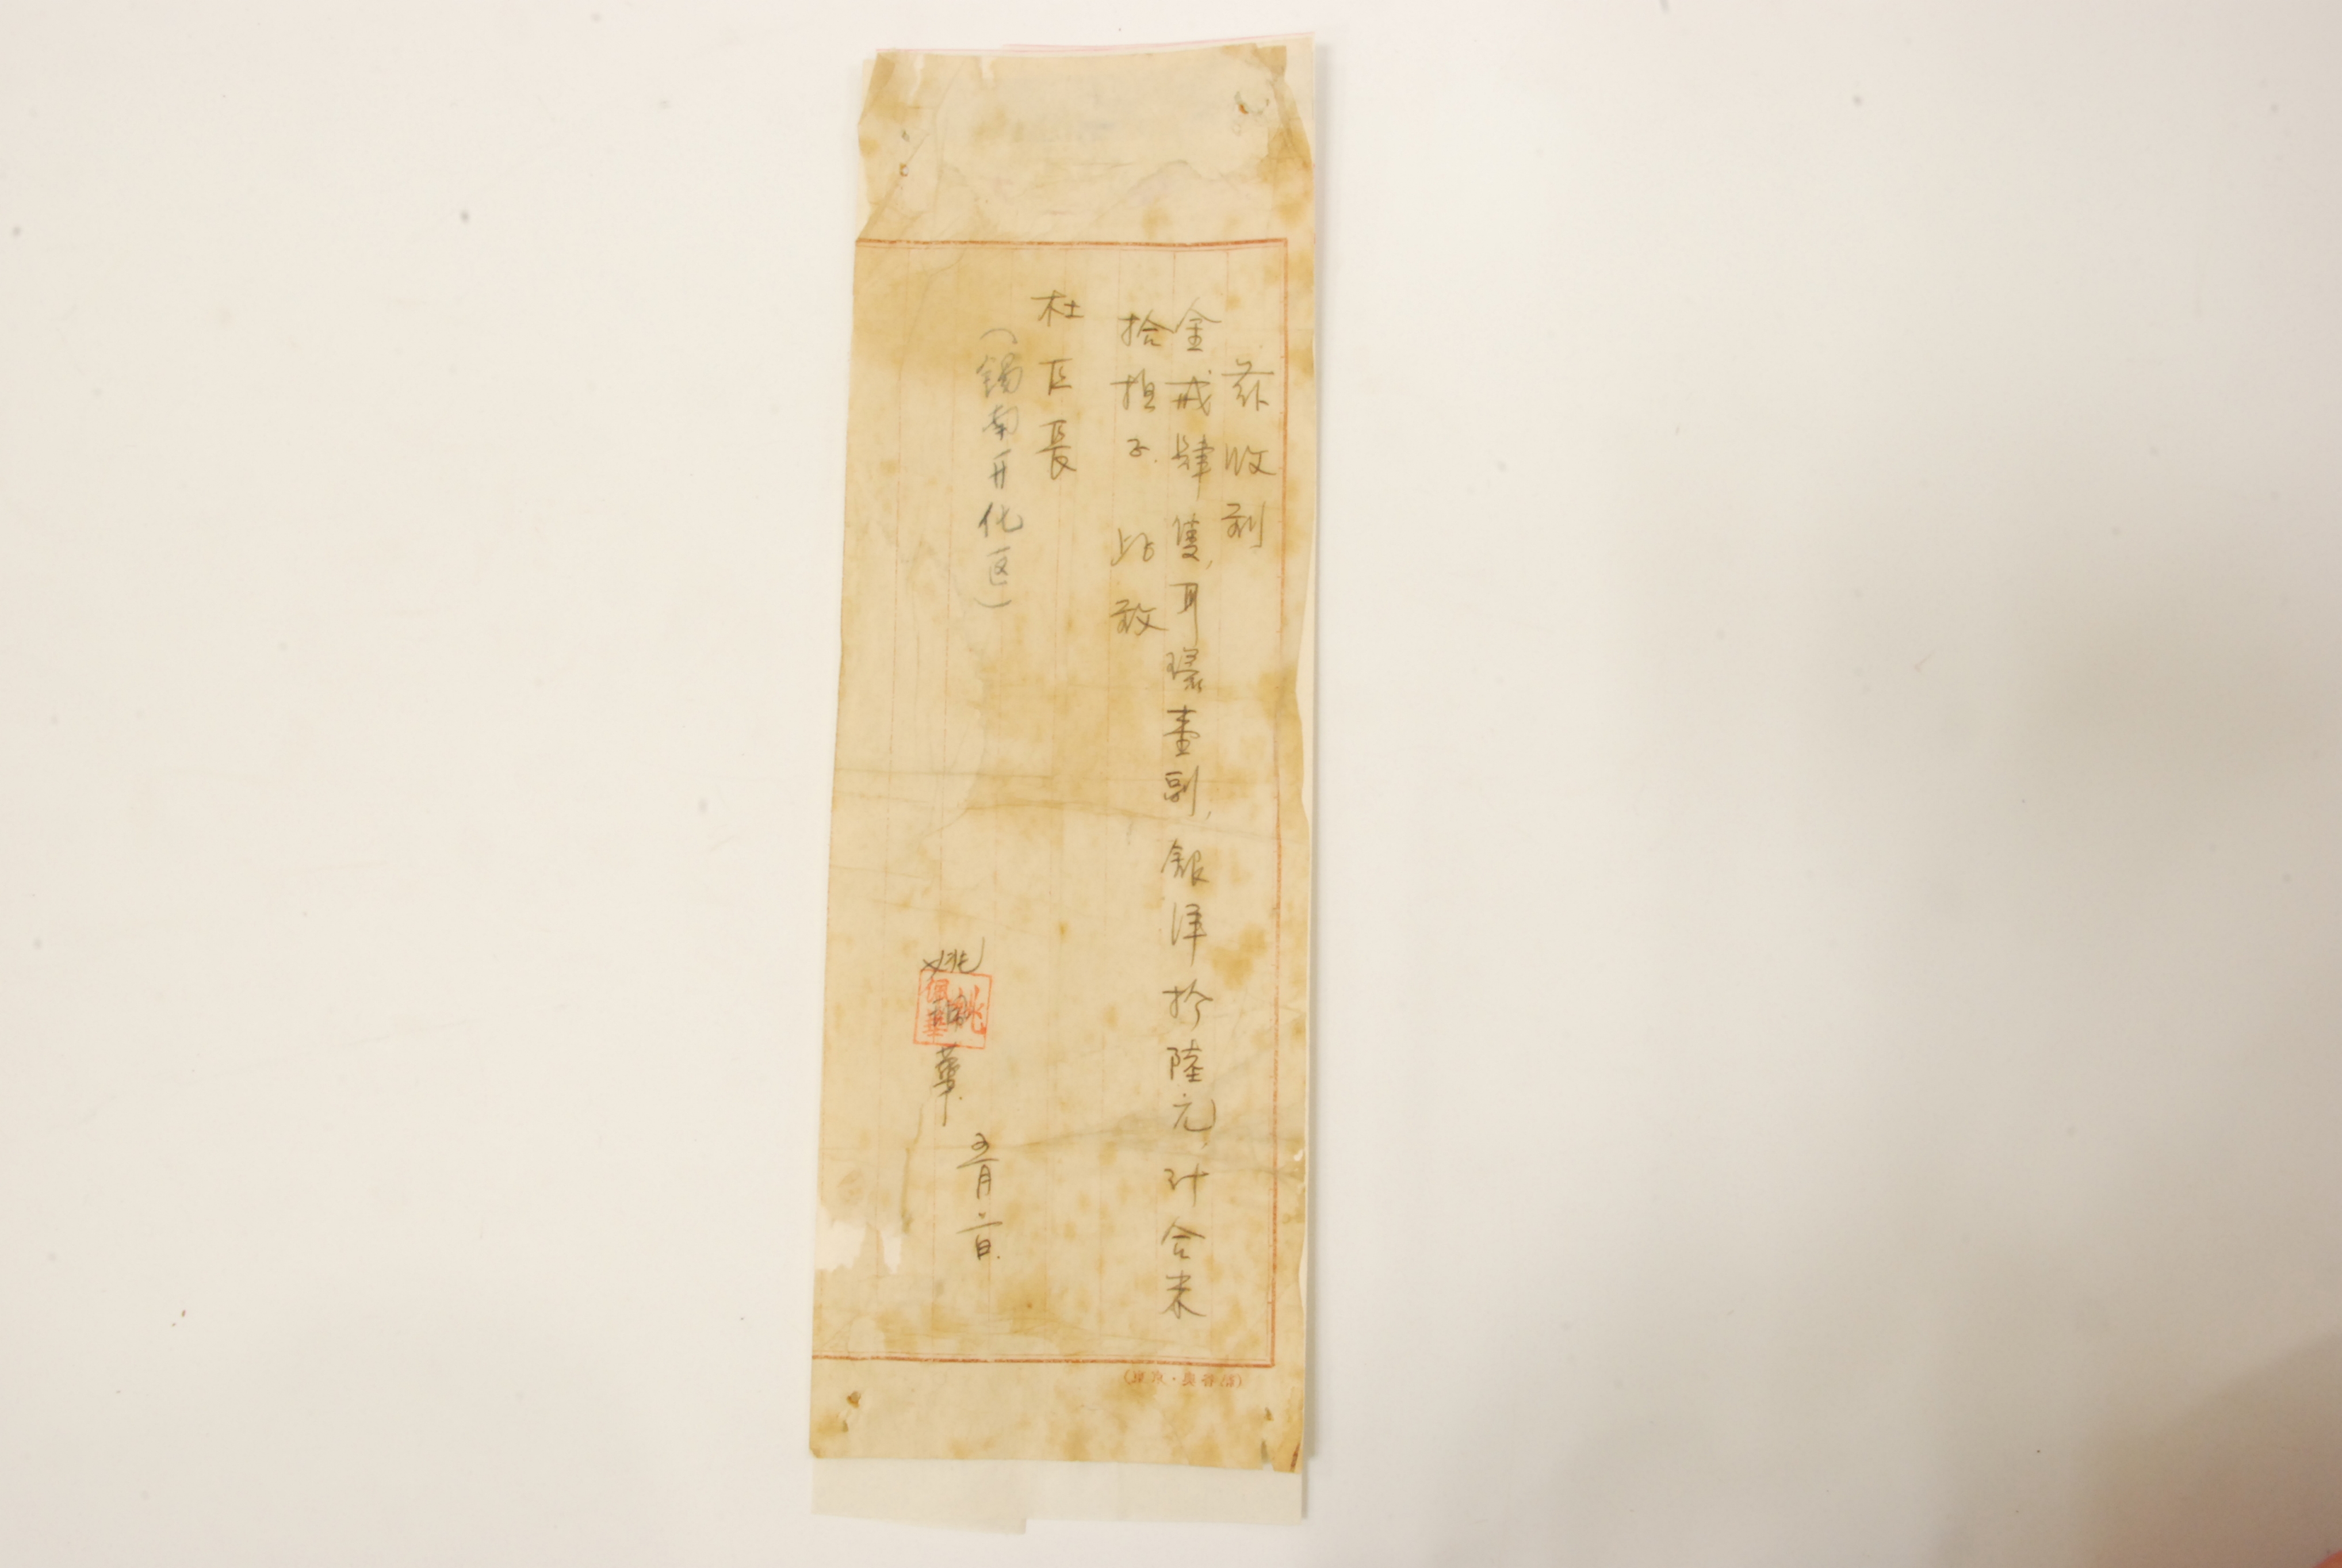 茲收到
金戒肆隻，耳環壹副，銀洋拾陸元，計合米
拾担子. 此致
杜区長
（錫南开化区）
姚佩華.
五月二日.
姚佩華